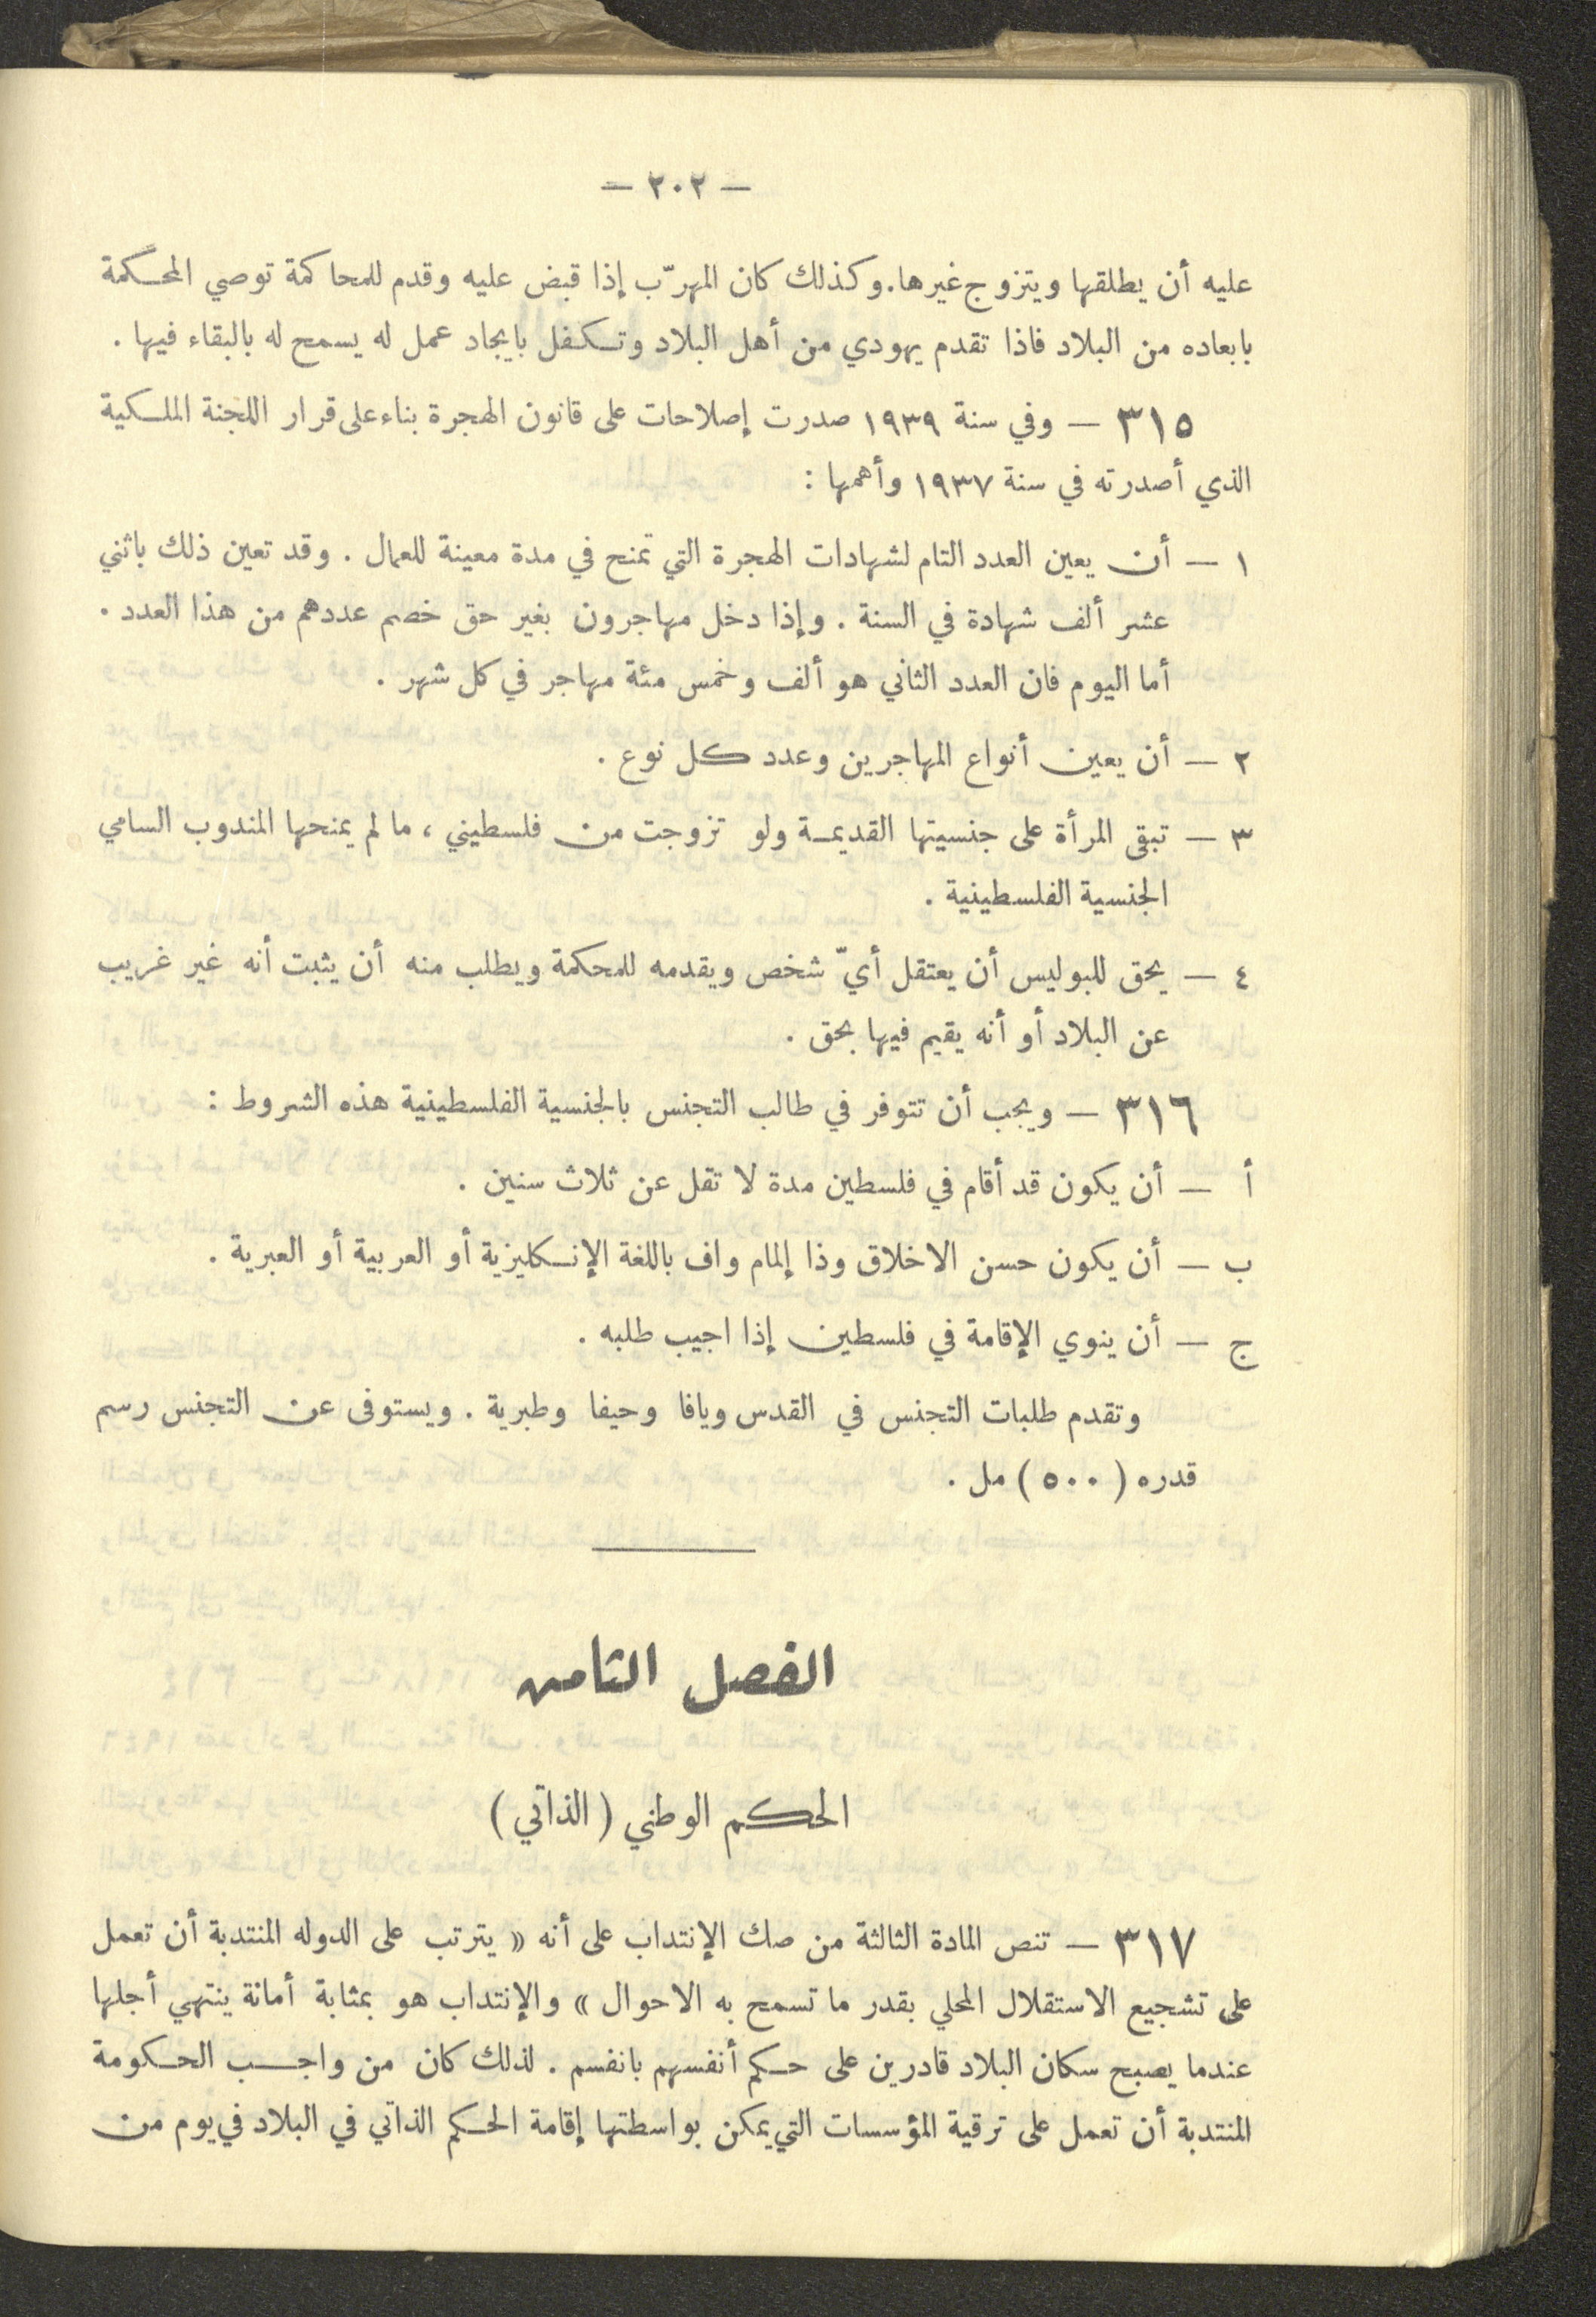 — ٢٠٢ —
عليه أن يطلقها ويتزوج غيرها. وكذلك كان المهرّب إذا قبض عليه وقدم للمحاكمة توصي المحكمة
بابعاده من البلاد فاذا تقدم يهودي من أهل البلاد وتكفل بايجاد عمل له يسمح له بالبقاء فيها .
٣١٥ — وفي سنة ١٩٣٩ صدرت إصلاحات على قانون الهجرة بناء على قرار اللجنة الملكية
الذي أصدرته في سنة ١٩٣٧ وأهمها :
١ — أن يعين العدد التام لشهادات الهجرة التي تمنح في مدة معينة للعمال . وقد تعين ذلك باثني
عشر ألف شهادة في السنة . وإذا دخل مهاجرون بغير حق خصم عددهم من هذا العدد .
أما اليوم فان العدد الثاني هو ألف وخمس مئة مهاجر في كل شهر .
٢ — أن يعين أنواع المهاجرين وعدد كل نوع .
٣ — تبقى المرأة على جنسيتها القديمة ولو تزوجت من فلسطيني ، ما لم يمنحها المندوب السامي
الجنسية الفلسطينية .
٤ — يحق للبوليس أن يعتقل أيّ شخص ويقدمه للمحكمة ويطلب منه أن يثبت أنه غير غريب
عن البلاد أو أنه يقيم فيها بحق .
٣١٦ — ويجب أن تتوفر في طالب التجنس بالجنسية الفلسطينية هذه الشروط :
أ — أن يكون قد أقام في فلسطين مدة لا تقل عن ثلاث سنين .
ب — أن يكون حسن الاخلاق وذا إلمام واف باللغة الإنكليزية أو العربية أو العبرية .
ج — أن ينوي الإقامة في فلسطين إذا اجيب طلبه .
وتقدم طلبات التجنس في القدس ويافا وحيفا وطبرية . ويستوفى عن التجنس رسم
قدره ( ٥٠٠ ) مل .
الفصل الثامن
الحكم الوطني ( الذاتي )
٣١٧ — تنص المادة الثالثة من صك الإنتداب على أنه « يترتب على الدوله المنتدبة أن تعمل
على تشجيع الاستقلال المحلي بقدر ما تسمح به الاحوال » والإنتداب هو بمثابة أمانة ينتهي أجلها
عندما يصبح سكان البلاد قادرين على حكم أنفسهم بانفسم . لذلك كان من واجب الحكومة
المنتدبة أن تعمل على ترقية المؤسسات التي يمكن بواسطتها إقامة الحكم الذاتي في البلاد في يوم من